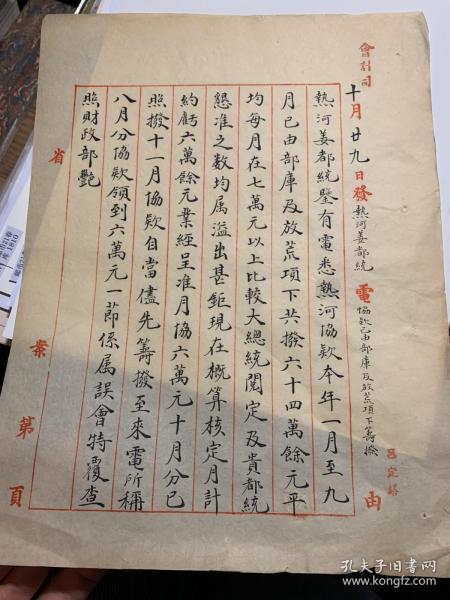 會計司
十月廿九日發熱河姜都統電協款已由部庫及放荒項下籌撥由
呂定
熱河姜都統鑒有電悉熱河協欵本年一月至九
月已由部庫及放荒項下共撥六十四萬餘元平
均每月在七萬元以上比較大總統閱定及貴都統
懇准之數均属溢出甚鉅現在概算核定月計
約虧六萬餘元業經呈准月協六萬元十月分已
照撥十一月協欵自當儘先籌撥至來電所稱
八月分協欵領到六萬元一節係属誤會特覆查
照財政部艷
省案第頁
孔夫子旧书网
www.kongfz.com